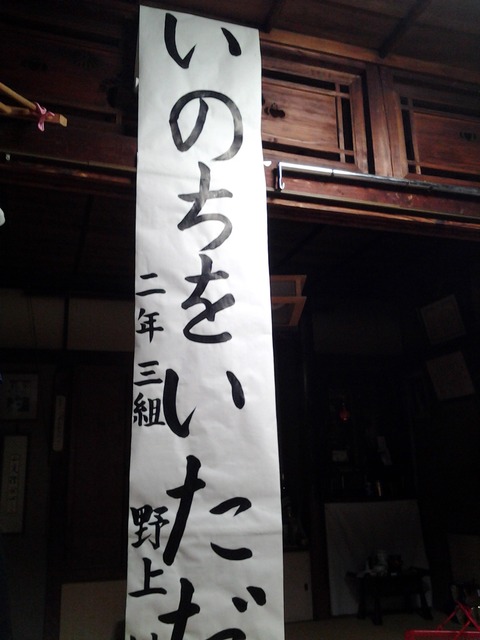 いのちをいただ
二年三組 野上